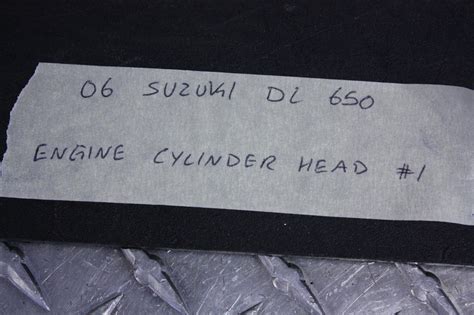 06 SUZUKI DL 650
ENGINE CYLINDER HEAD #1